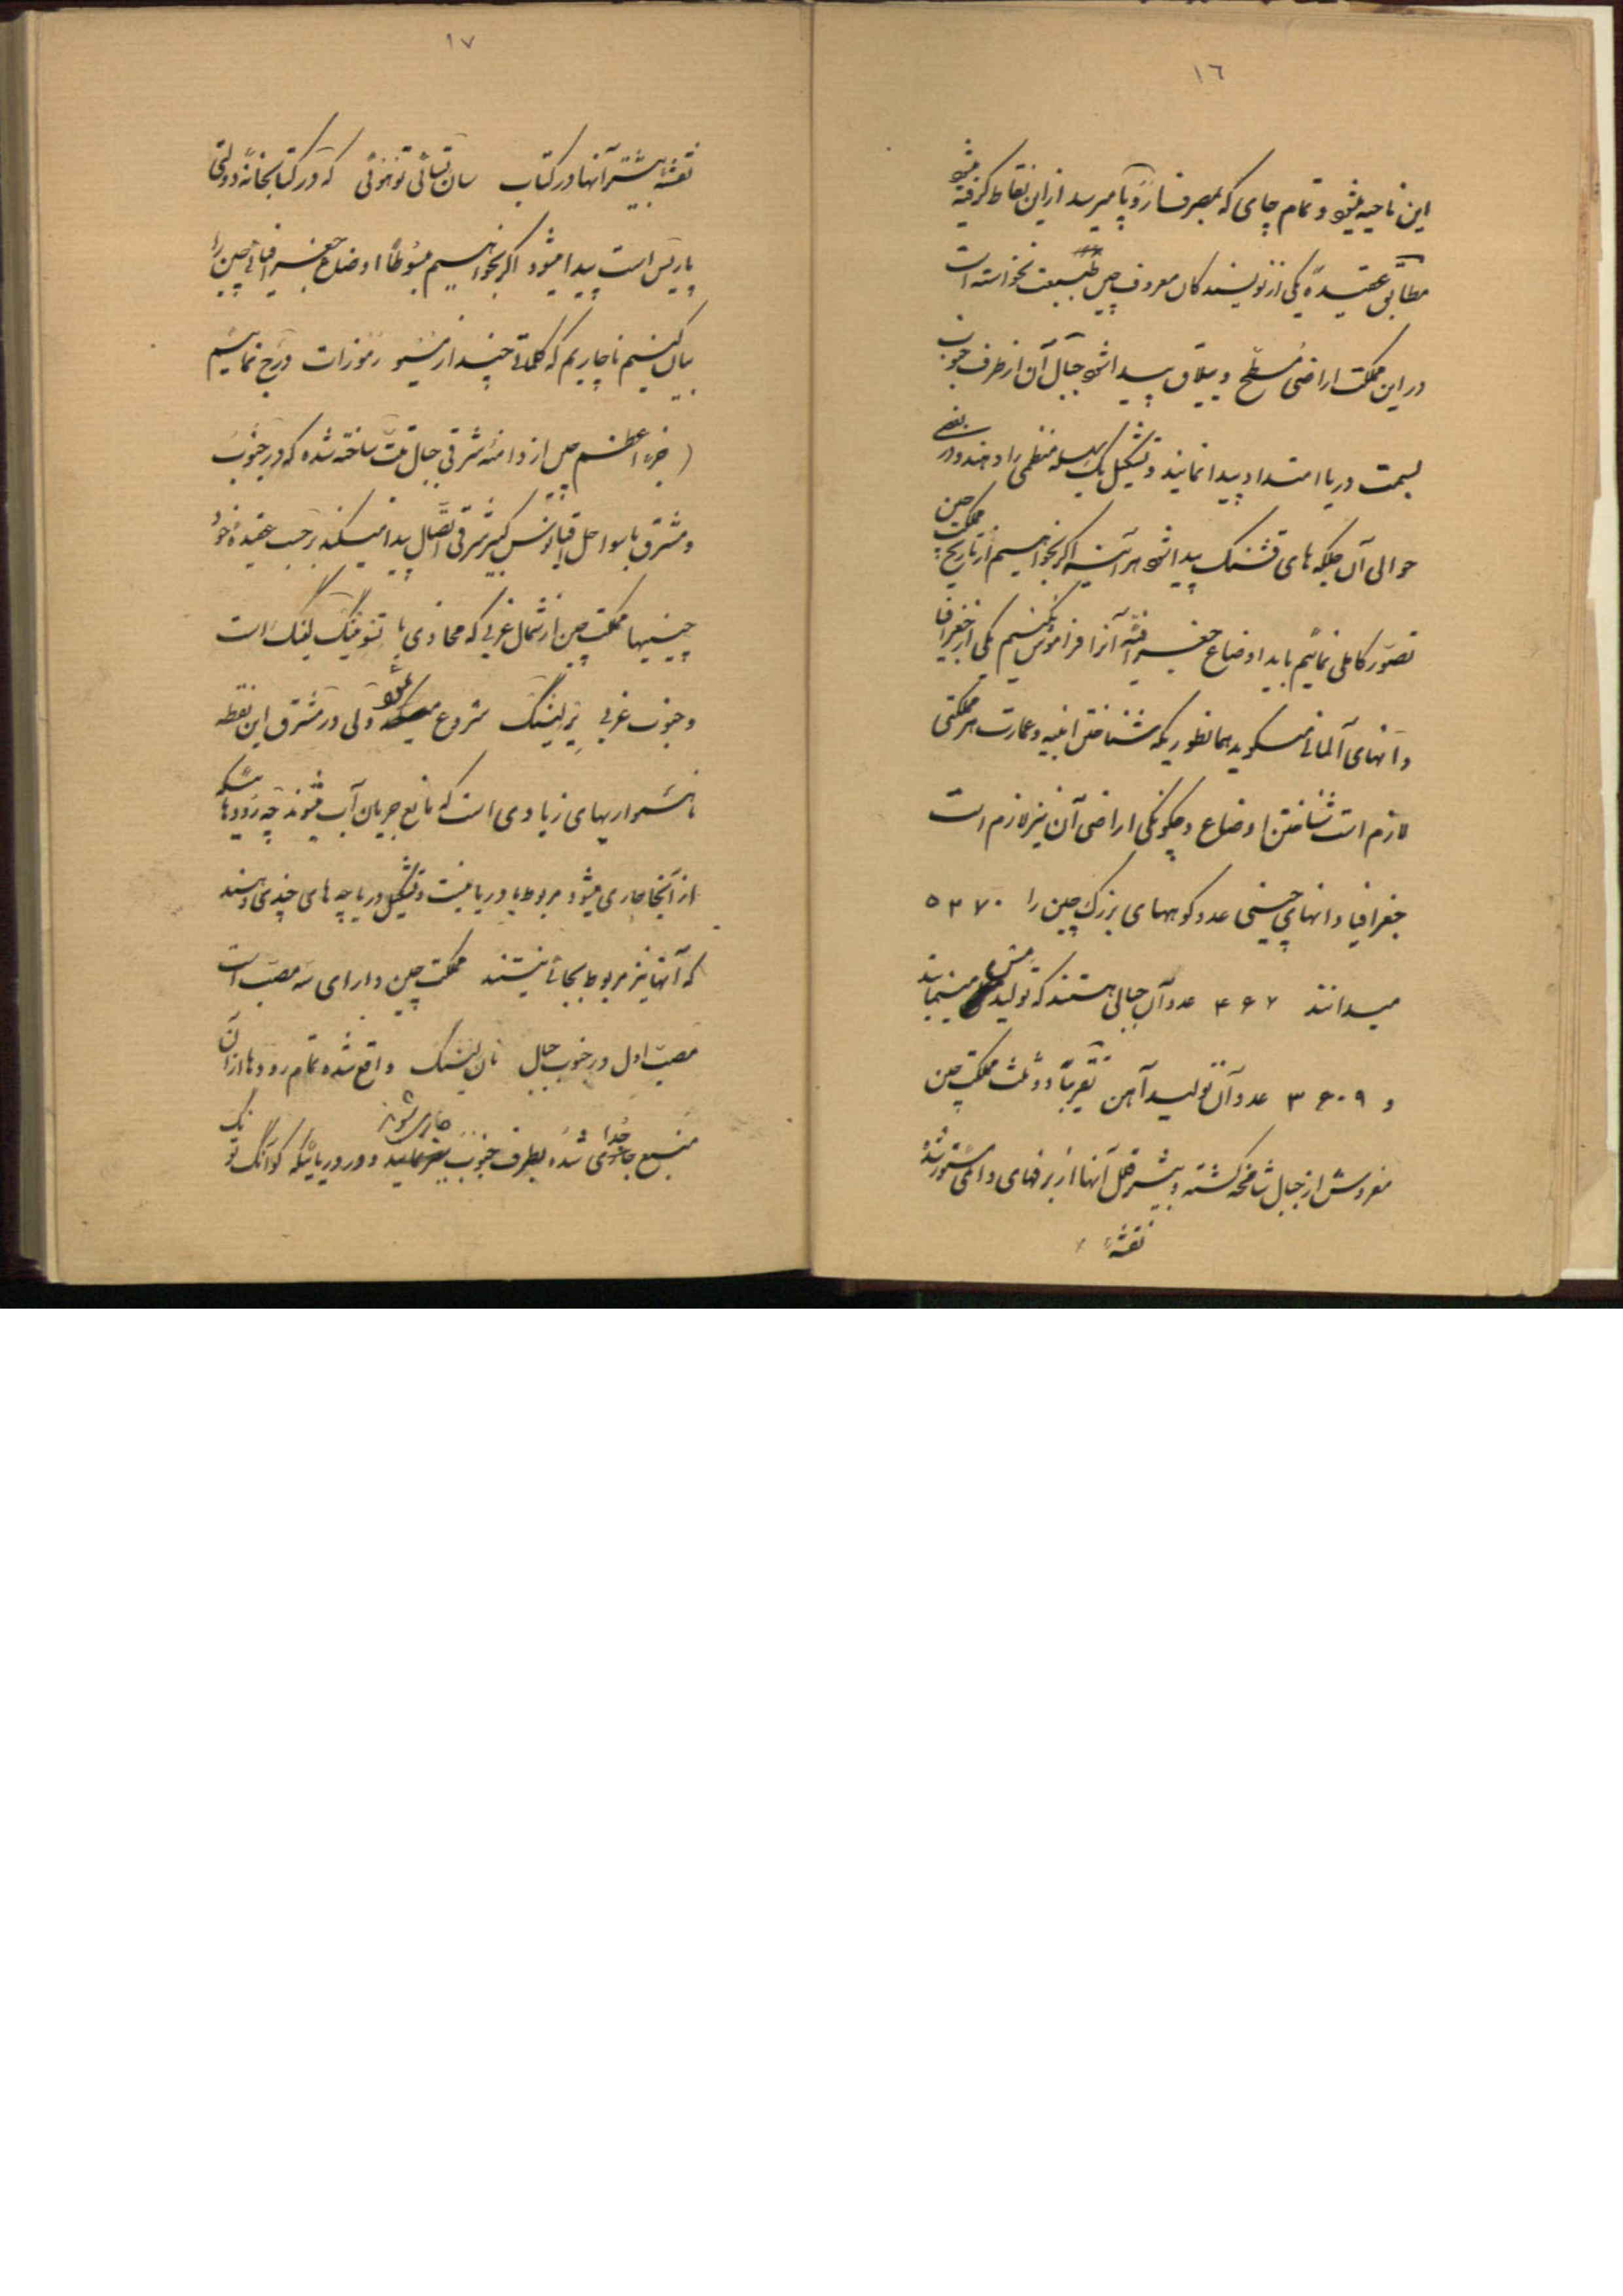 ١٦
این ناحیه میشود و تمام چای که بمصرف اروپا میرسد از این نقاط گرفته میشود
مطابق عقیده یکی از نویسندگان معروف چین طبیعت نخواسته است
در این مملکت اراضی مسطح و ییلاق پیدا شود جبال آن از طرف جنوب
بسمت دریا امتداد پیدا نمایند و تشکیل یک سلسله منظمی را دهند و در بعضی
حوالی آن جلگه های قشنگ پیدا شود هر آینه اگر بخواهیم از تاریخ مملکت چین
تصور کاملی نمائیم باید اوضاع جغرافیه آنرا فراموش نکنیم یکی از جغرافیا
دانهای آلمانی میگوید همانطوریکه شناختن ابنیه و عمارت هر مملکتی
لازم است شناختن اوضاع و چگونگی اراضی آن نیز لازم است
جغرافیا دانهای چینی عدد کوههای بزرگ چین را ۵۳۷۰
میدانند ۴۶۷ عدد آن جبالی هستند که تولید مس مینمایند
و ۳۶۰۹ عدد آن تولید آهن تقریباً دو ثلث مملکت چین
مفروش از جبال شامخه گشته و بیشتر قلل آنها از برفهای دائمی مستور شده
نقشهٔ
١٧
نقشهٔ بیشتر آنها در کتاب سان تسائی توهوئی که در کتابخانه دولتی
پاریس است پیدا میشود اگر بخواهیم مبسوطاً اوضاع جغرافیائی چین را
بیان کنیم ناچاریم که کلماتی چند از مسیو رموزات درج نمائیم
(جزء اعظم چین از دامنه شرقی جبال تبت ساخته شده که در جنوب
و مشرق با سواحل اقیانوس کبیر شرقی اتصال پیدا میکند بر حسب عقیده خود
چینیها مملکت چین از شمال غربی که محاذی با تسومینگ لینگ است
و جنوب غربی پزلینگ شروع میشود ولی در مشرق این نقطه
ناهمواریهای زیادی است که مانع جریان آب میشوند چه رودهائیکه
از آنجا جاری میشود مربوط با دریا نیست و تشکیل دریاچه های چندی دهند
که آنها نیز مربوط بجائی نیستند مملکت چین دارای سه مصب است
مصب اول در جنوب جبال نان لینگ واقع شده تمام رودها از آن
منبع جدا شده بطرف جنوب جاری شوند و در دریائیکه کوآنگ تونگ